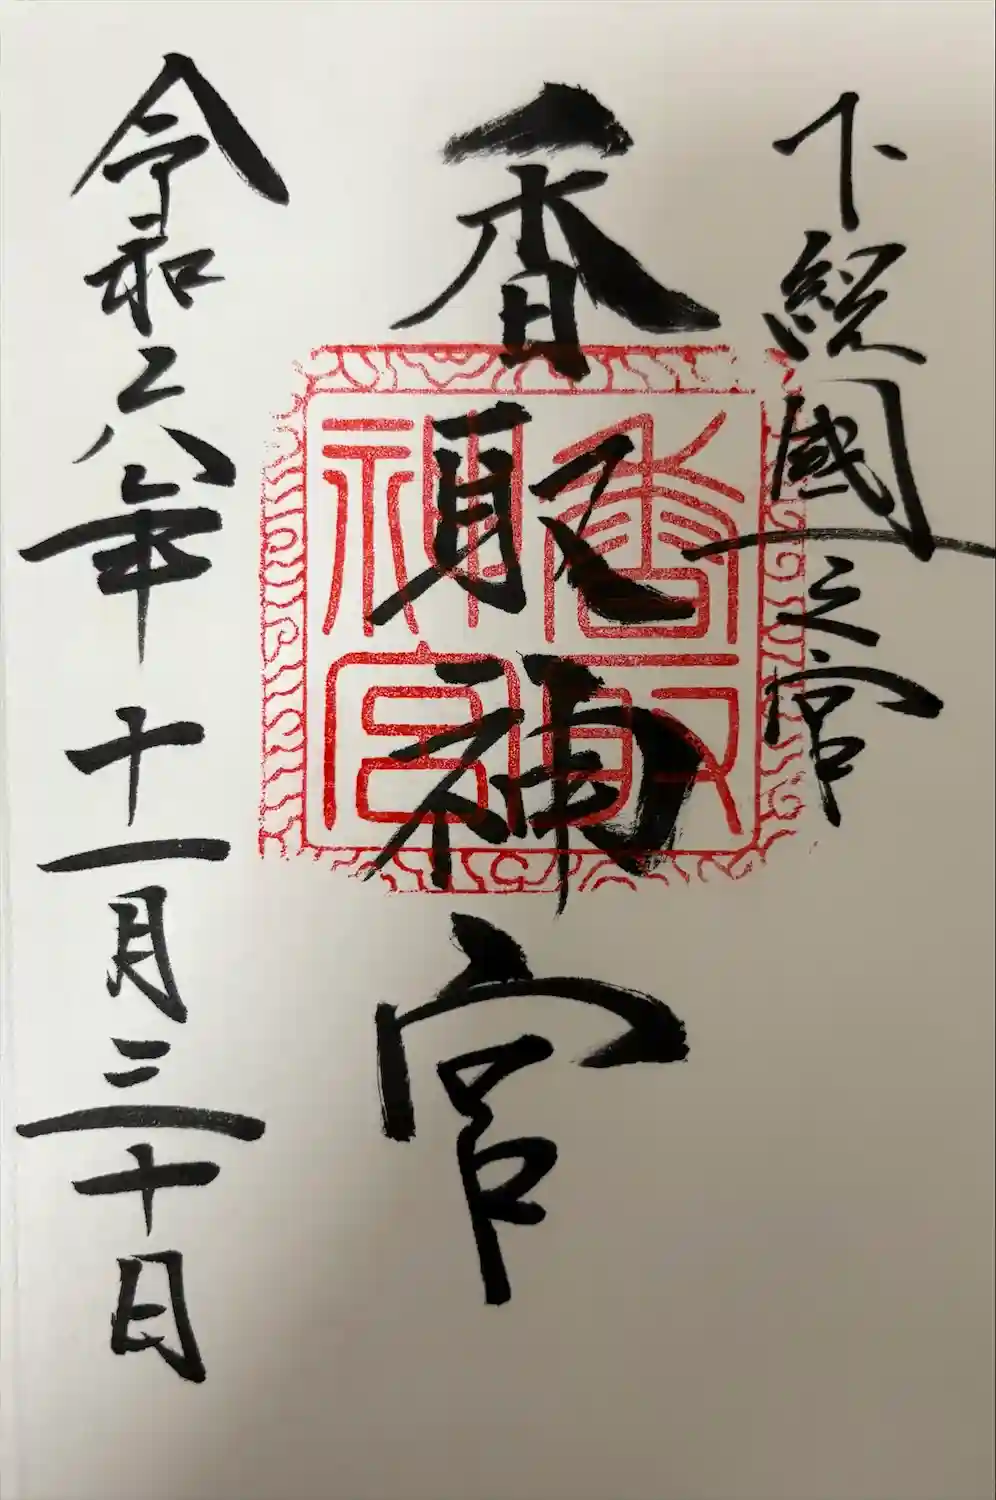 下総國一之宮
香取神宮
香取
神宮
令和六年十一月三十日